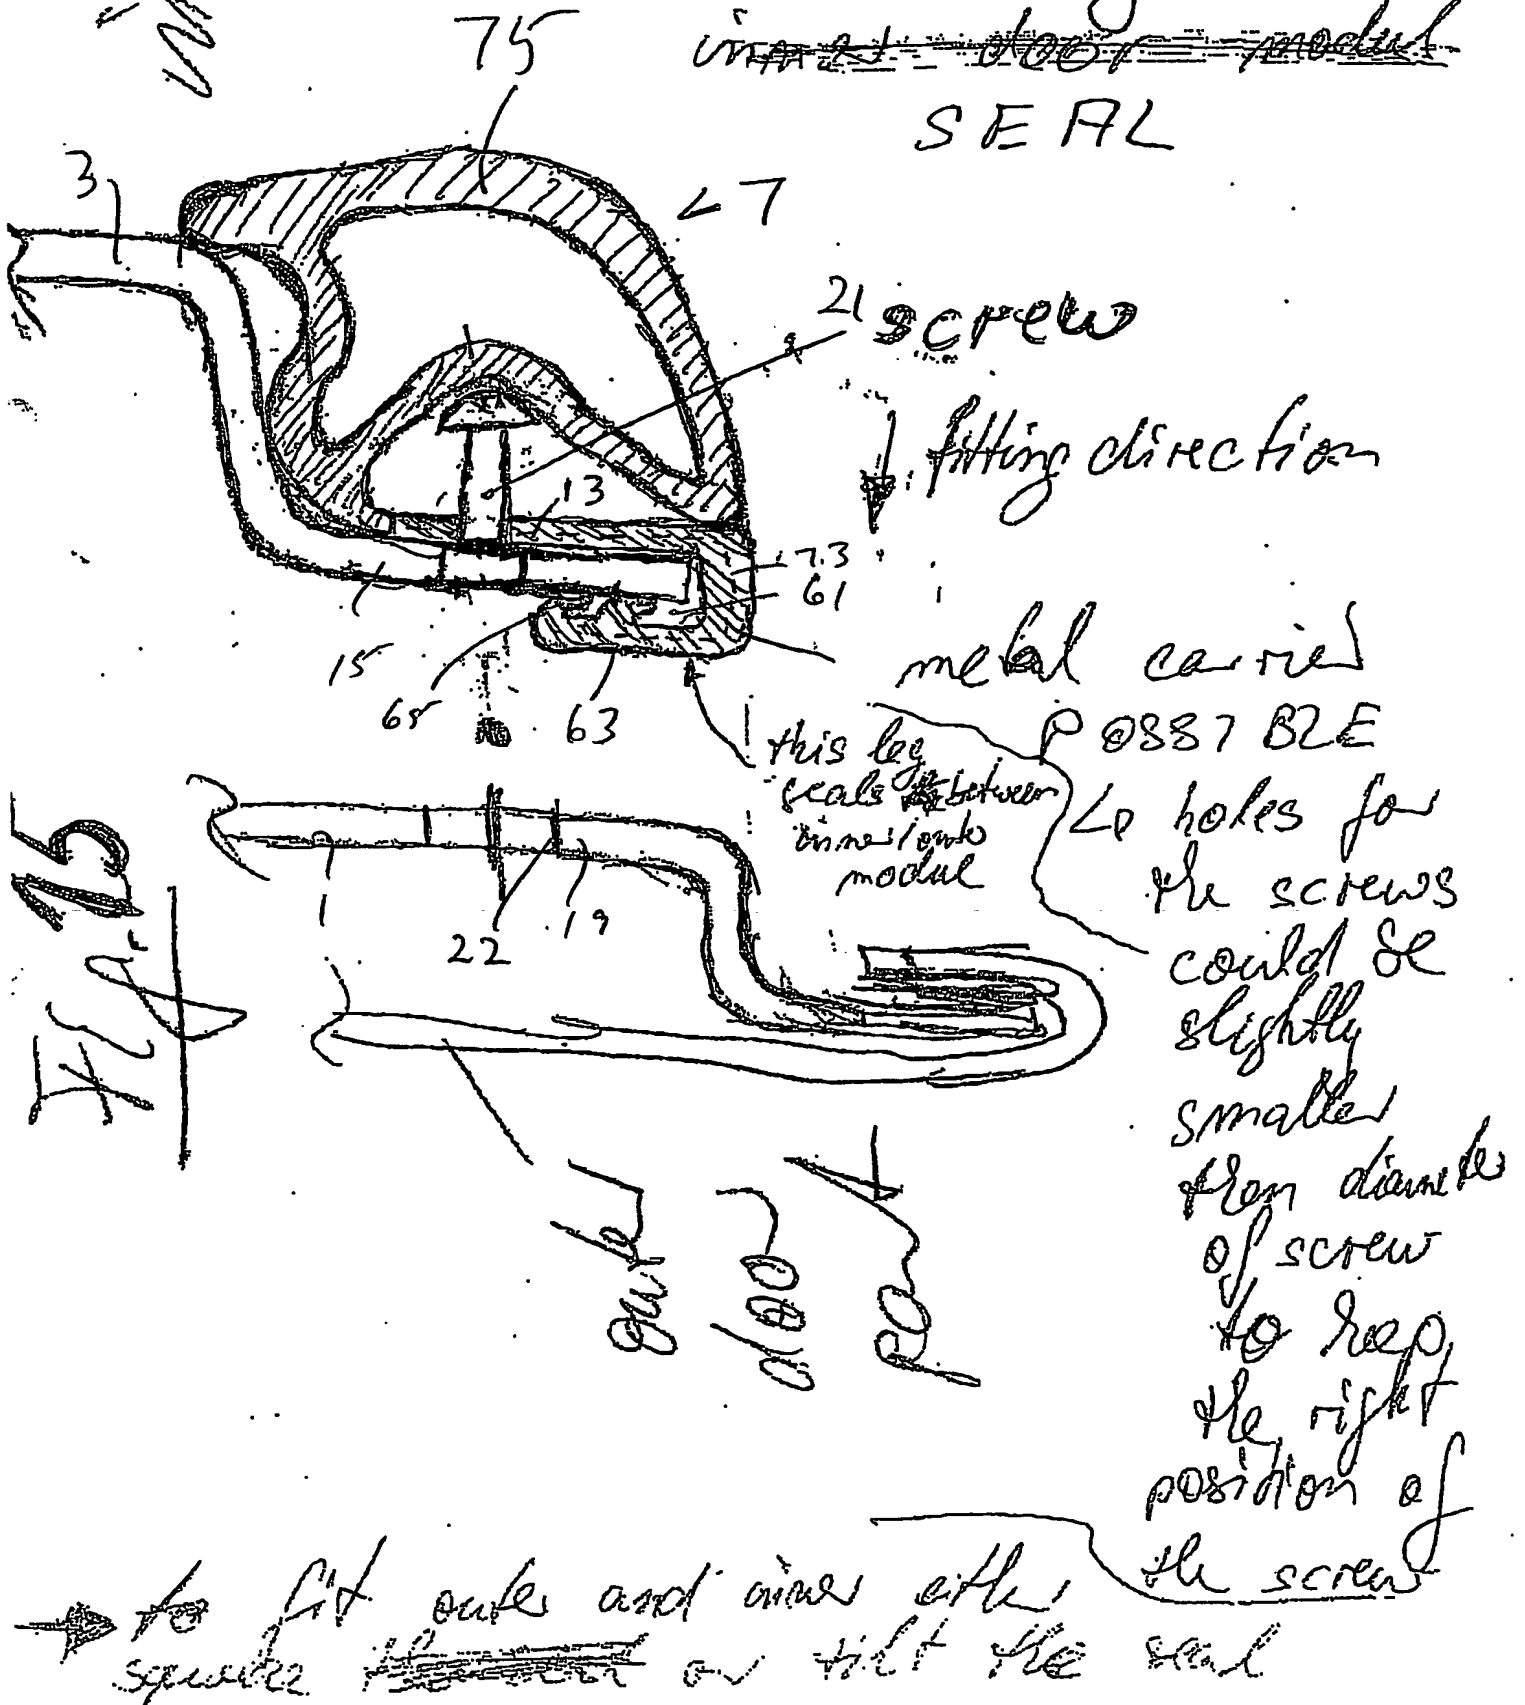 75
SEAL
3
47
21 screw
fitting direction
13
73
61
15
65
63
metal carrier
P 0887 BZE
this leg
seals between
inner / outer
modul
holes for
the screws
could be
slightly
smaller
then diameter
of screw
to keep
the right
position of
the screw
1
22
19
Fig. 15
outer
door
part
to fit outer and inner either
or tilt the seal